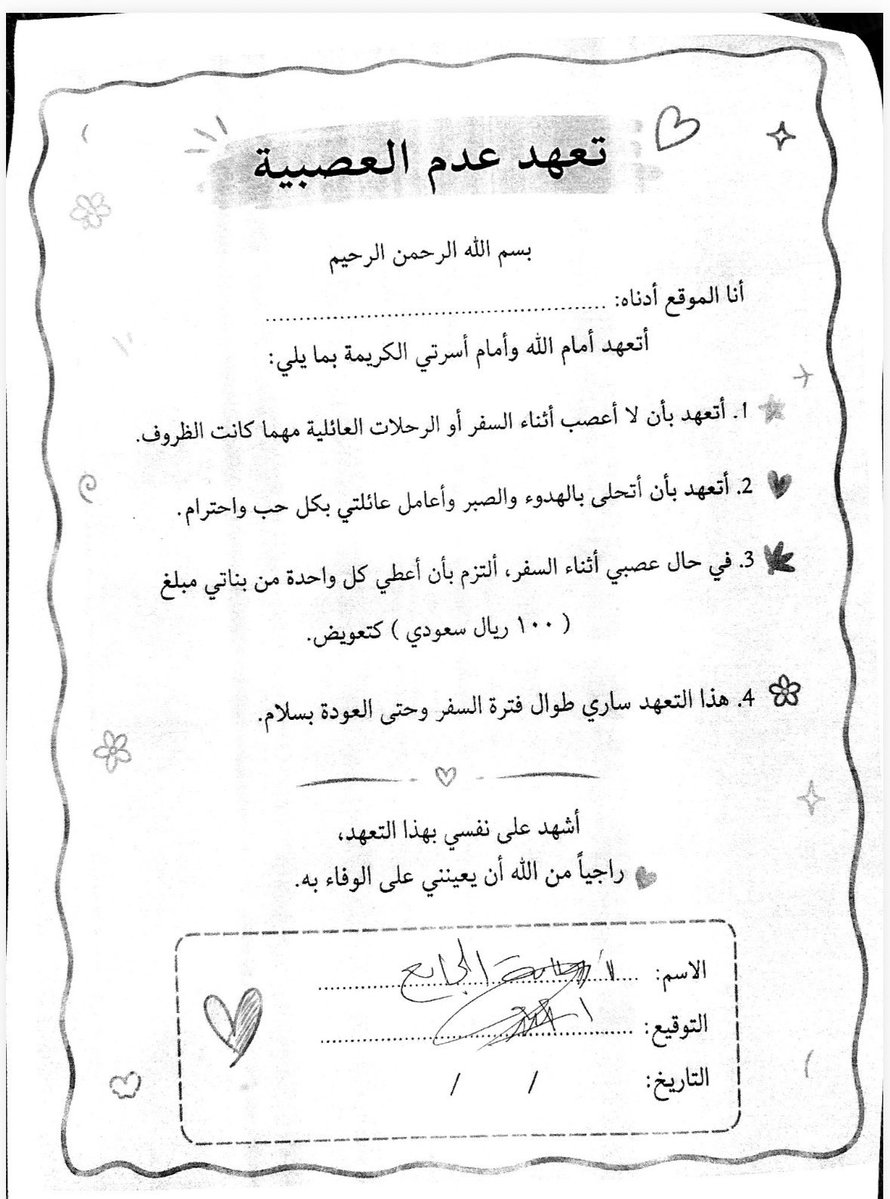 تعهد عدم العصبية
بسم الله الرحمن الرحيم
أنا الموقع أدناه: ................................................
أتعهد أمام الله وأمام أسرتي الكريمة بما يلي:
1. أتعهد بأن لا أعصب أثناء السفر أو الرحلات العائلية مهما كانت الظروف.
2. أتعهد بأن أتحلى بالهدوء والصبر وأعامل عائلتي بكل حب واحترام.
3. في حال عصبي أثناء السفر، ألتزم بأن أعطي كل واحدة من بناتي مبلغ
( ١٠٠ ريال سعودي ) كتعويض.
4. هذا التعهد ساري طوال فترة السفر وحتى العودة بسلام.
أشهد على نفسي بهذا التعهد،
راجياً من الله أن يعينني على الوفاء به.
الاسم:
التوقيع:
التاريخ: / /